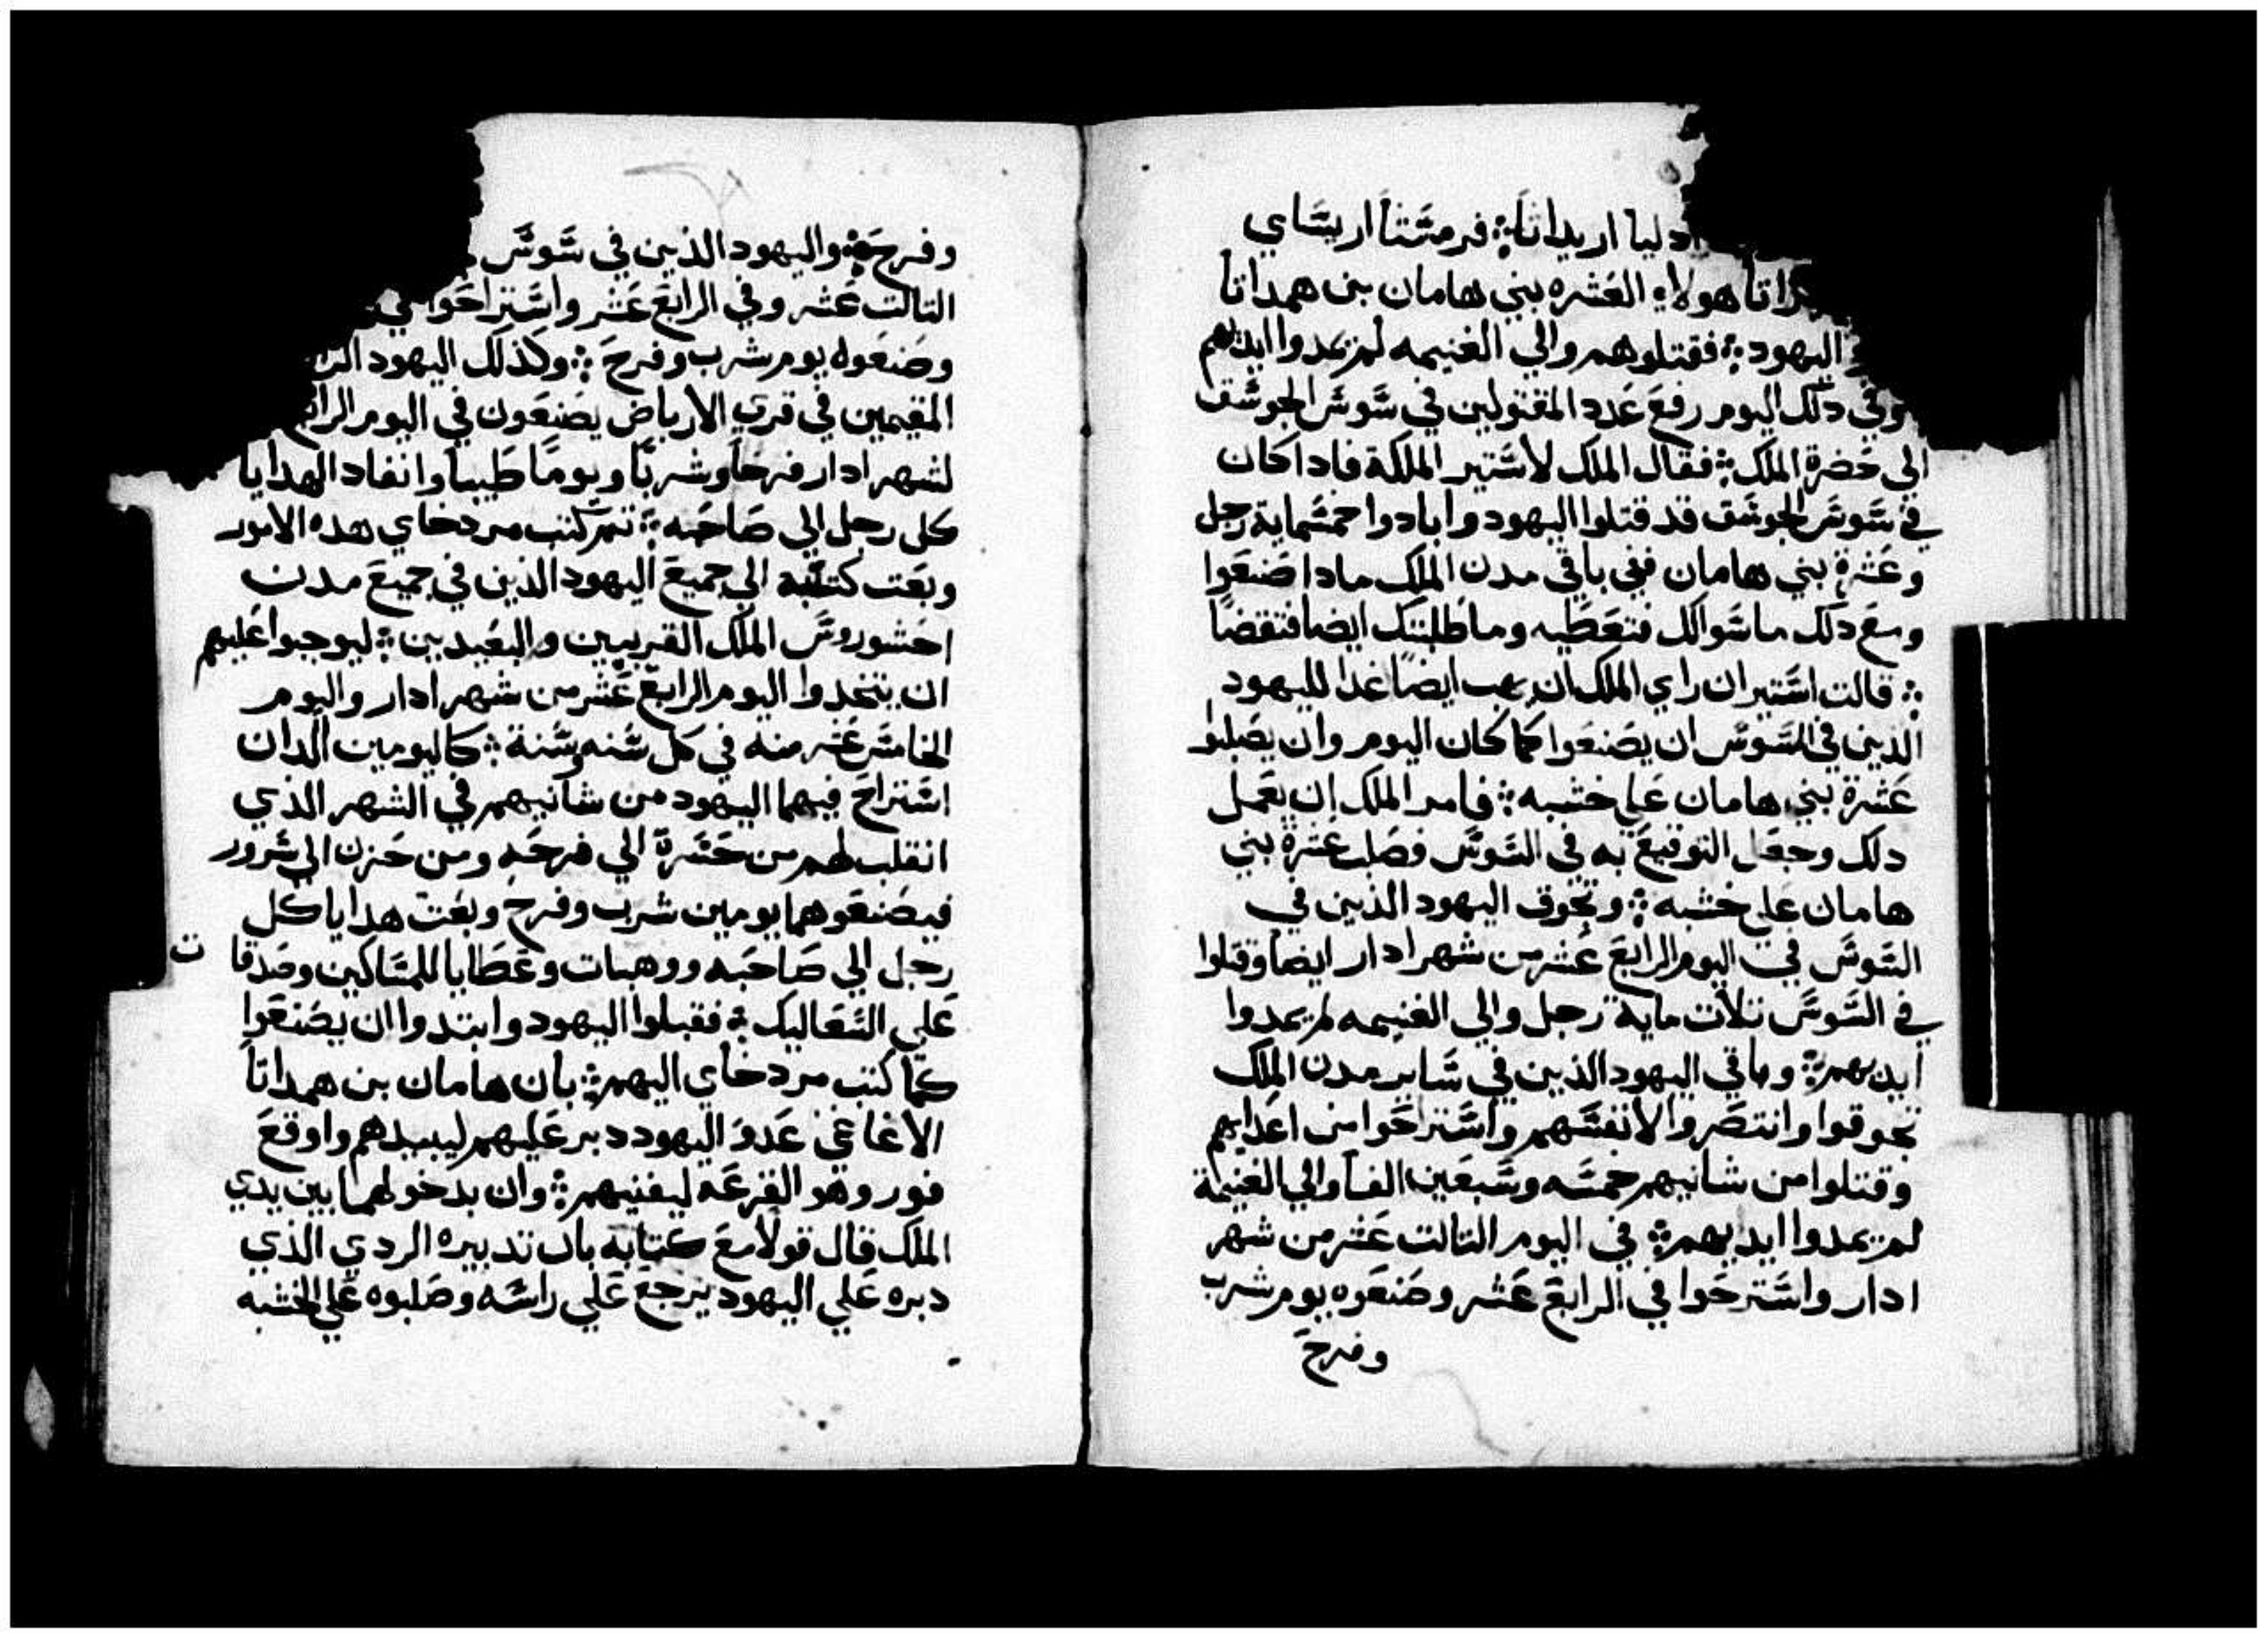 ادليا اريداثا ܀ فرمشتا اريساي
هولاء العشره بني هامان بن همداتا
اليهود ܀ فقتلوهم والي الغنيمه لم يمدوا ايديهم
وفي دلك اليوم رفع عدد المقتولين في سوس الجوسق
الى حضرة الملك ܀ فقال الملك لاستير الملكة فادا كان
في سوس الجوسق قد قتلوا اليهود وابادوا خمسماية رجل
وعشرة بني هامان ففي باقي مدن الملك مادا صنعوا
ومع دلك ما سوالك فتعطيه وما طلبتك ايضا فتقضا
܀ قالت استير ان راي الملك ان يهب ايضا غدا لليهود
الدين في السوس ان يصنعوا كما كان اليوم وان يصلبوا
عشرة بني هامان علي خشبه ܀ فامر الملك ان يعمل
دلك وجعل التوقيع به في السوس وصلب عشرة بني
هامان علي خشبه ܀ وتجوق اليهود الذين في
السوس في اليوم الرابع عشر من شهر ادار ايضا وقتلوا
في السوس تلات ماية رجل والي الغنيمه لم يمدوا
ايديهم ܀ وباقي اليهود الذين في ساير مدن الملك
تجوقوا وانتصروا لانفسهم واستراحوا من اعدايهم
وقتلوا من شانيهم خمسه وسبعين الفا والي الغنيمة
لم يمدوا ايديهم ܀ في اليوم التالت عشر من شهر
ادار واسترحوا في الرابع عشر وصنعوه يوم شرب
وفرح
وفرح ܀ واليهود الذين في سوس
التالت عشر وفي الرابع عشر واستراحوا في
وصنعوه يوم شرب وفرح ܀ وكذلك اليهود
المقيمين في قري الارباض يصنعون في اليوم الرابع
لشهر ادار فرحا وشربا ويوما طيبا وانفاد الهدايا
كل رجل الي صاحبه ܀ تم كتب مردخاي هده الامور
وبعت كتبه الي جميع اليهود الذين في جميع مدن
احشوروش الملك القريبين والبعيدين ܀ ليوجبوا عليهم
ان يتخدوا اليوم الرابع عشر من شهر ادار واليوم
الخامس عشر منه في كل سنه وسنة ܀ كاليومين الدان
استراح فيهما اليهود من شانيهم في الشهر الذي
انقلب لهم من حسرة الي فرحه ومن حزن الي سرور
فيصنعوهما يومين شرب وفرح وبعت هدايا كل
رجل الي صاحبه ووهبات وعطايا للمساكين وصدقات
علي السعاليك ܀ فقبلوا اليهود وابتدوا ان يصنعوا
كما كتب مردخاي اليهم ܀ بان هامان بن همداتا
الاغاغي عدو اليهود دبر عليهم ليبيدهم واوقع
فور وهو القرعه ليفنيهم ܀ وان بدخولها بين يدي
الملك قال قولا مع كتابه بان تدبيره الردي الذي
دبره علي اليهود يرجع علي راسه وصلبوه علي الخشبه